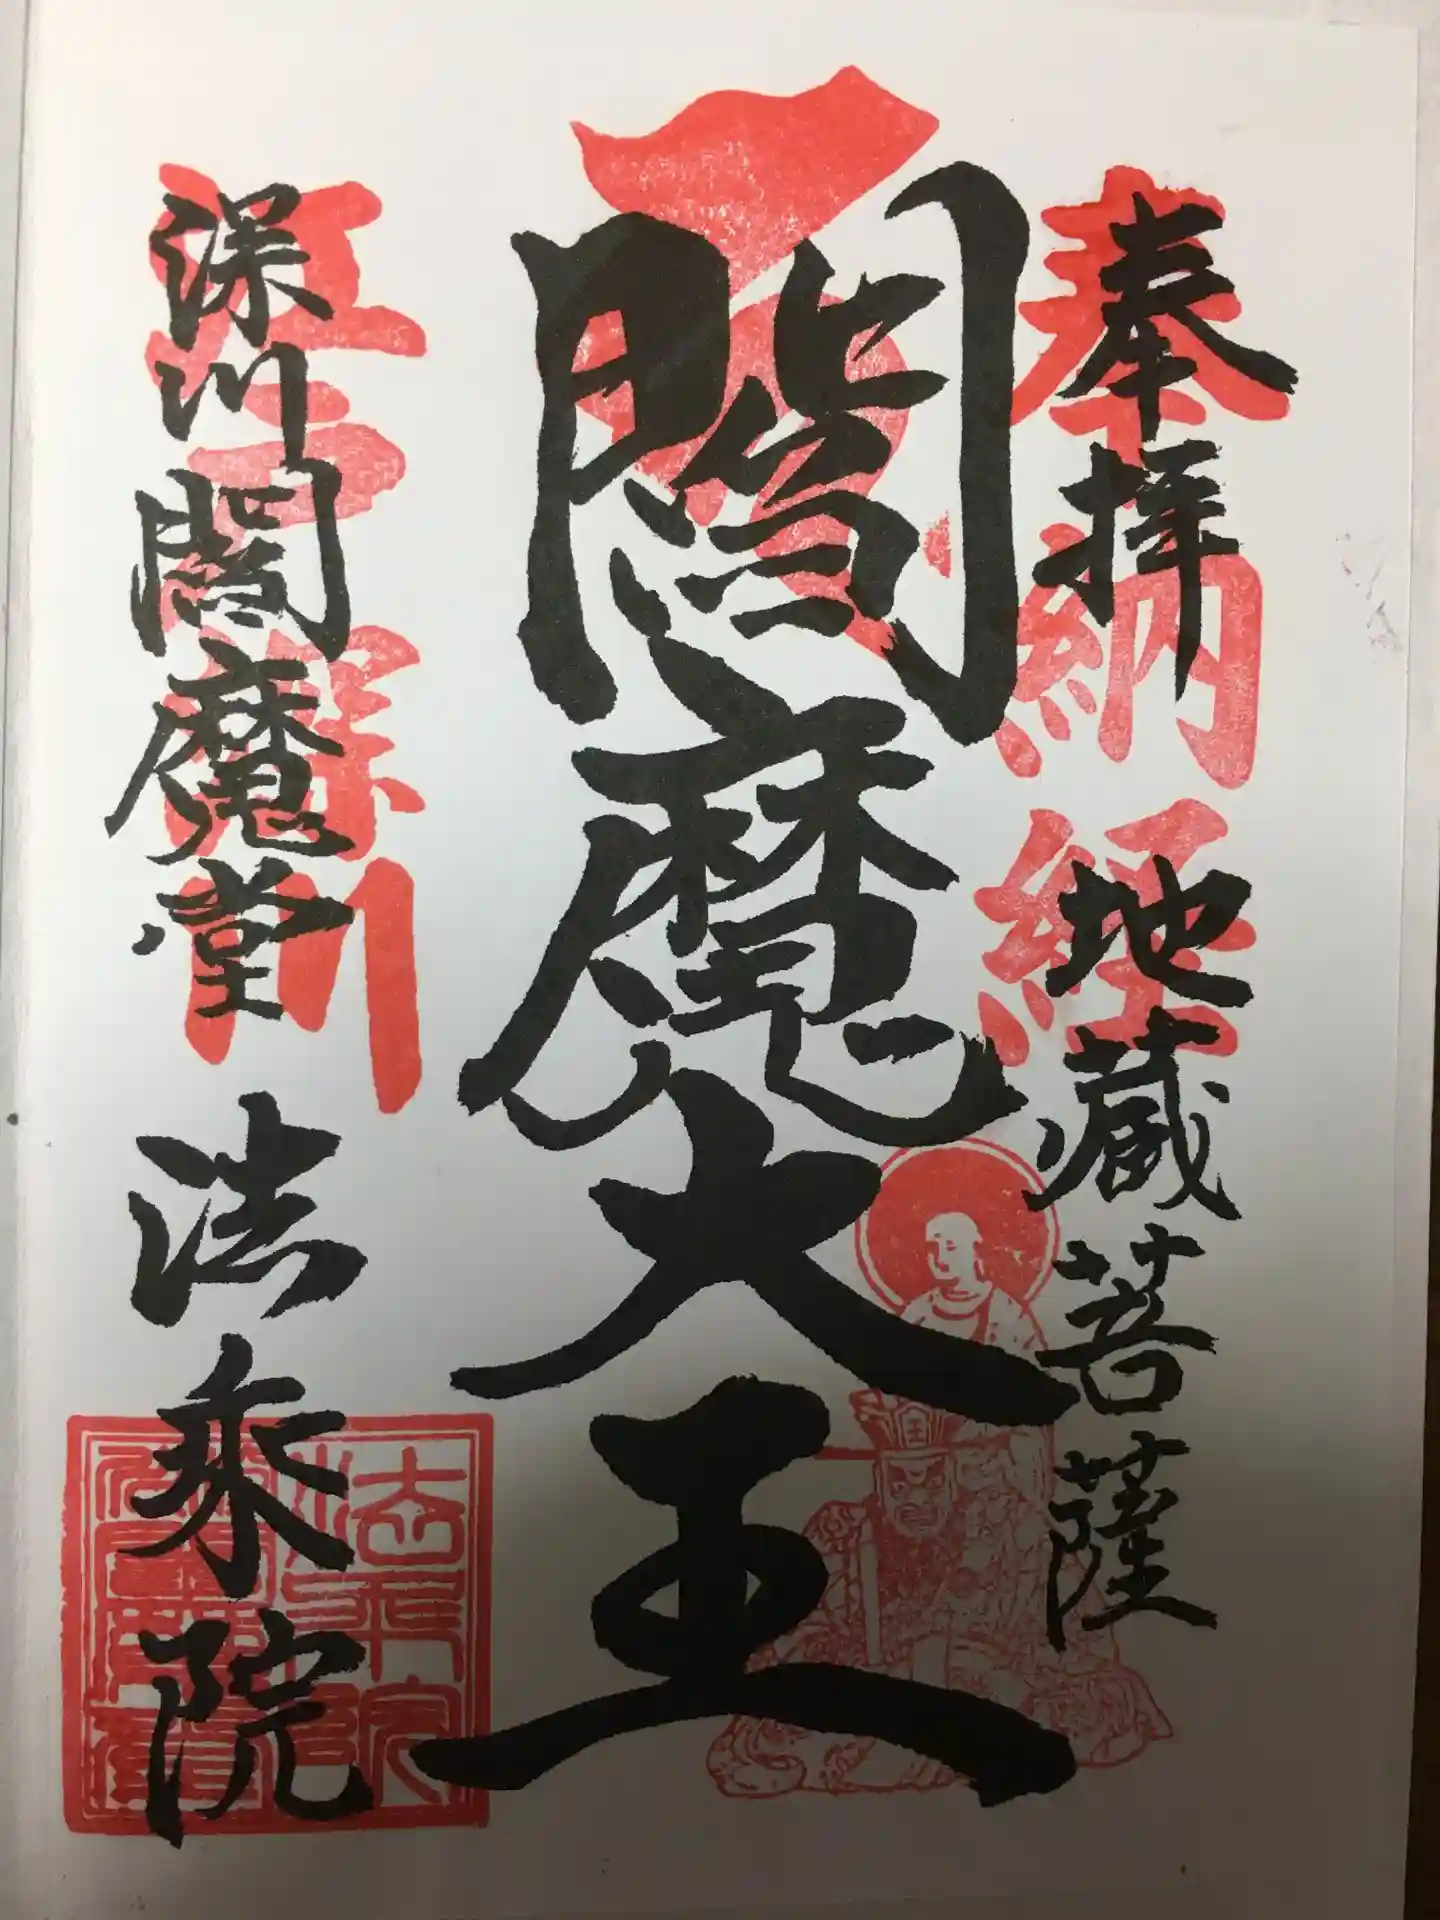 奉拝 地蔵菩薩
奉納経
閻魔大王
深川閻魔堂 法乗院
江戸深川
王